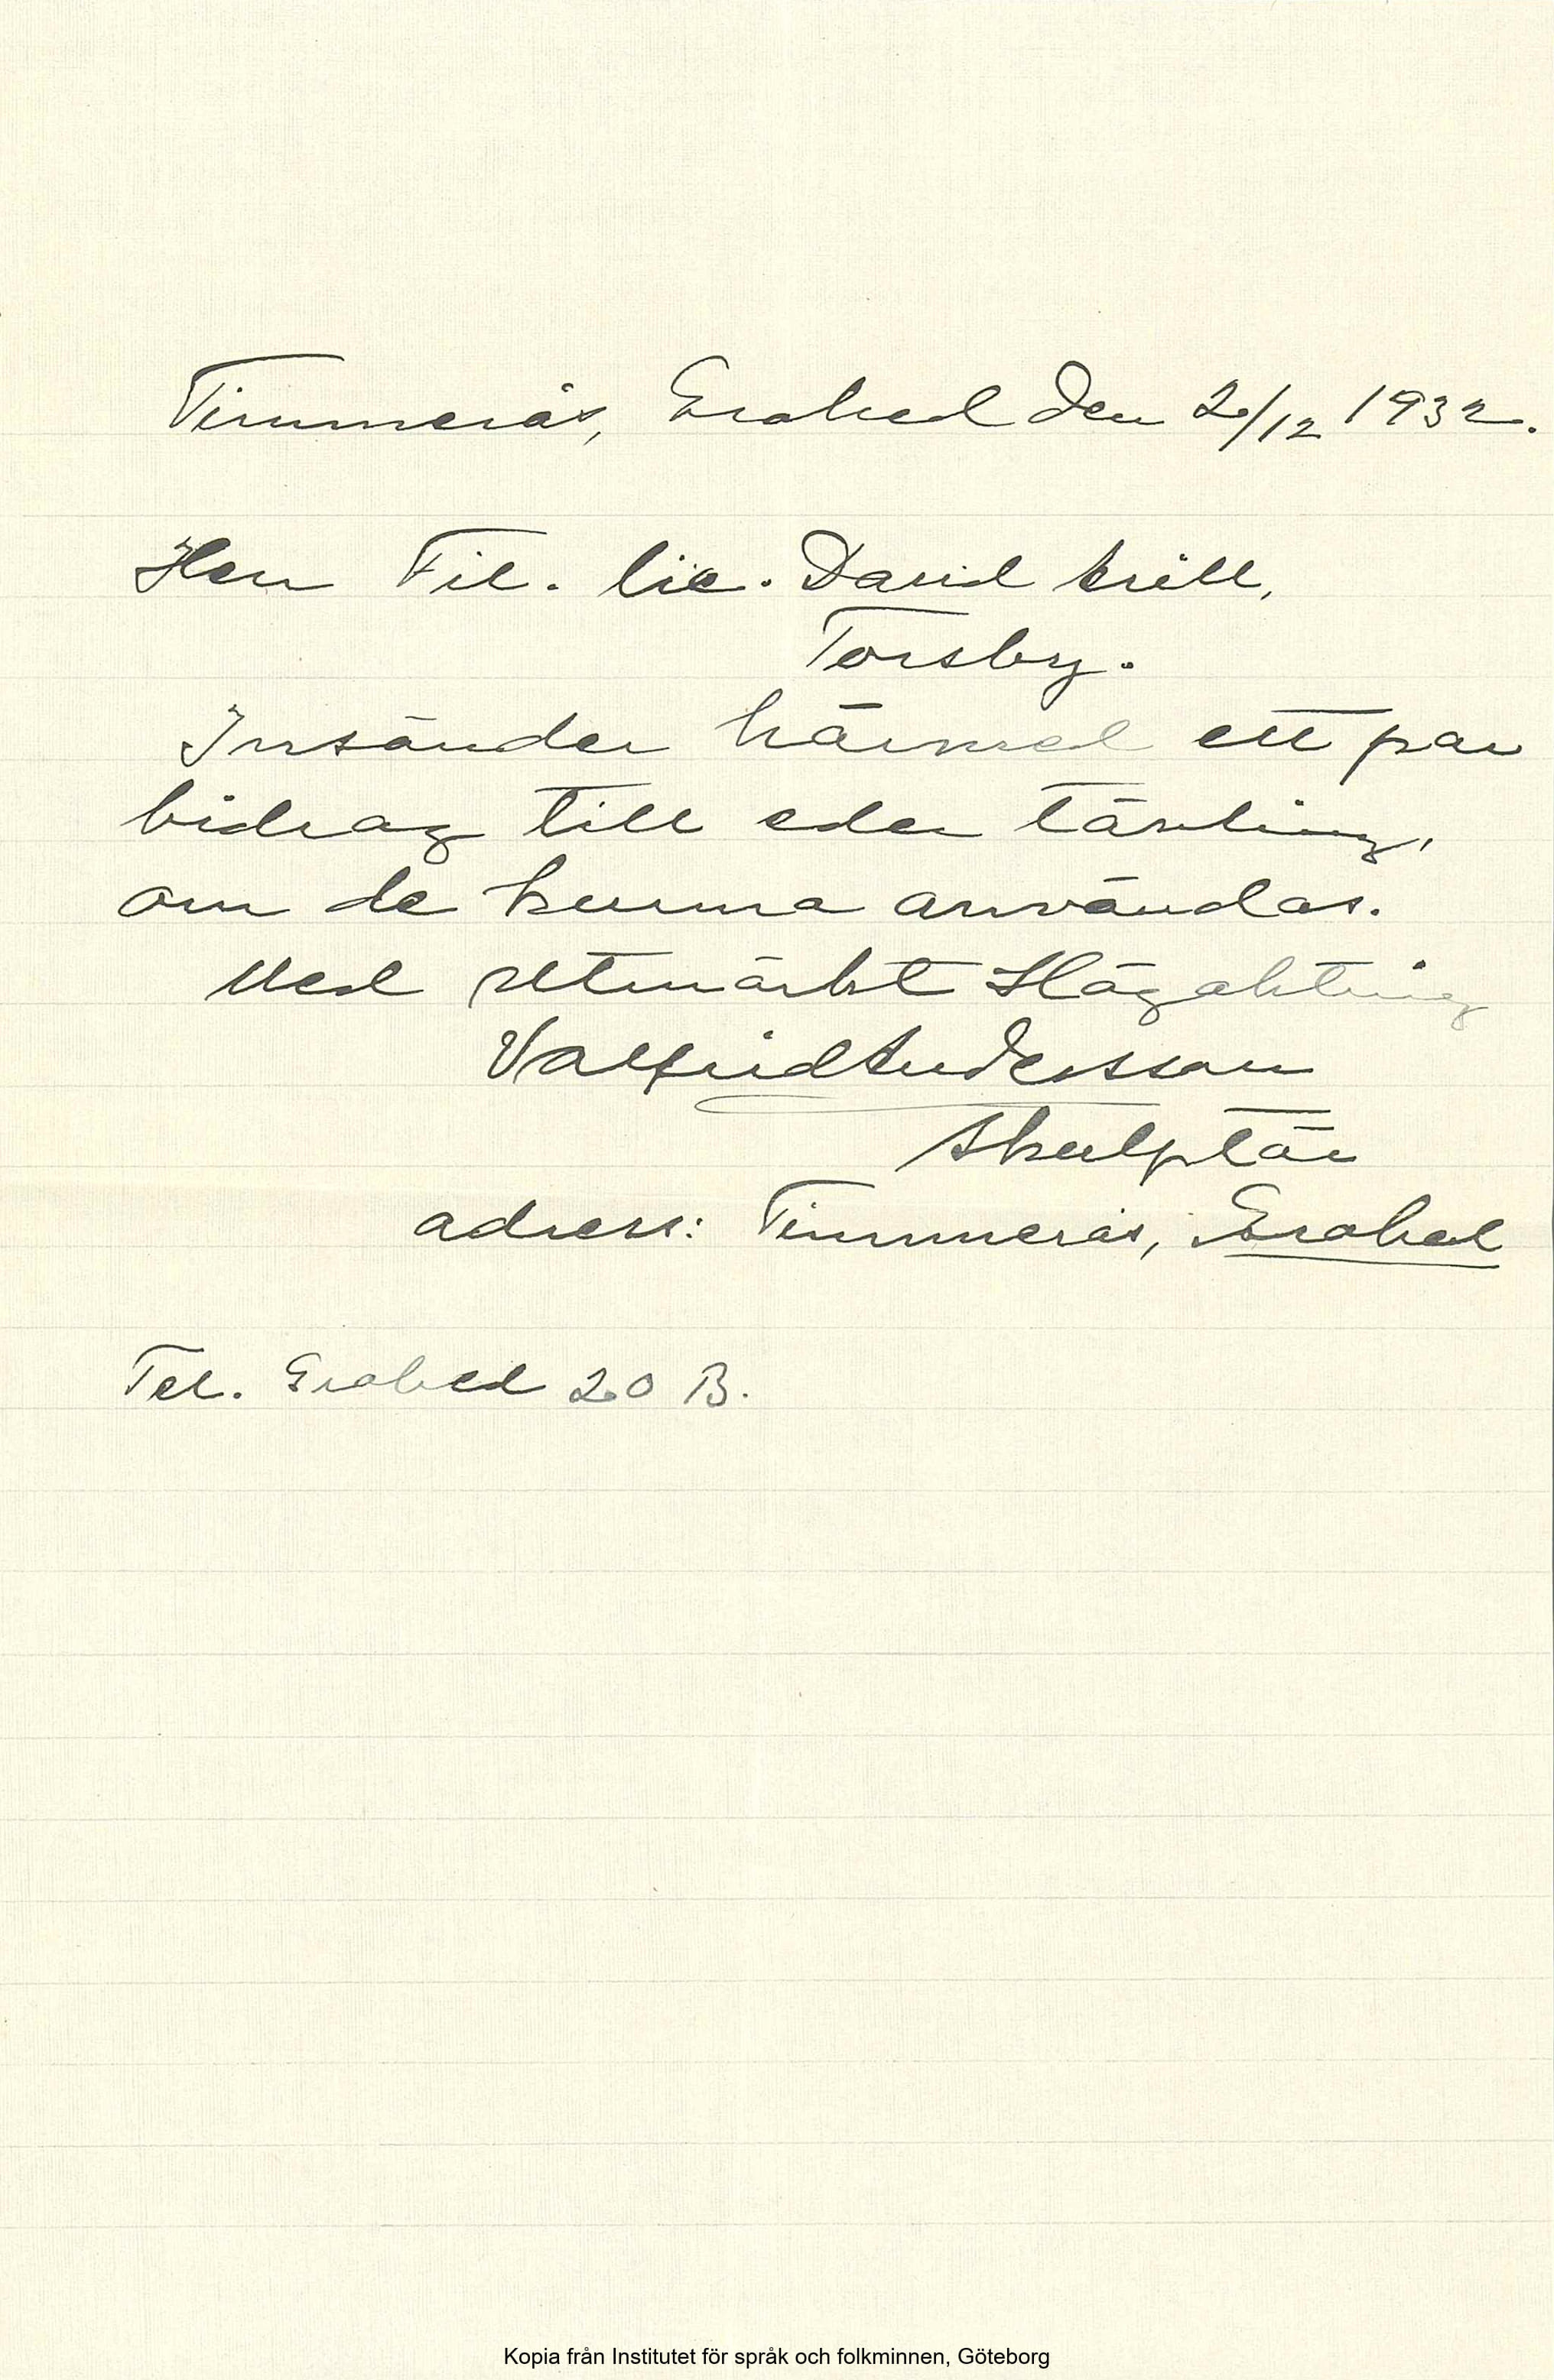 Timmerås, Grohed den 2/12 1932.
Herr Fil. lic. David Arill,
Torsby.
Insänder härmed ett par
bidrag till eder tävling,
om de kunna användas.
Med utmärkt Högaktning
Valfrid Andersson
Skulptör
adress: Timmerås, Grohed
Tel. Grohed 20 B.
Kopia från Institutet för språk och folkminnen, Göteborg